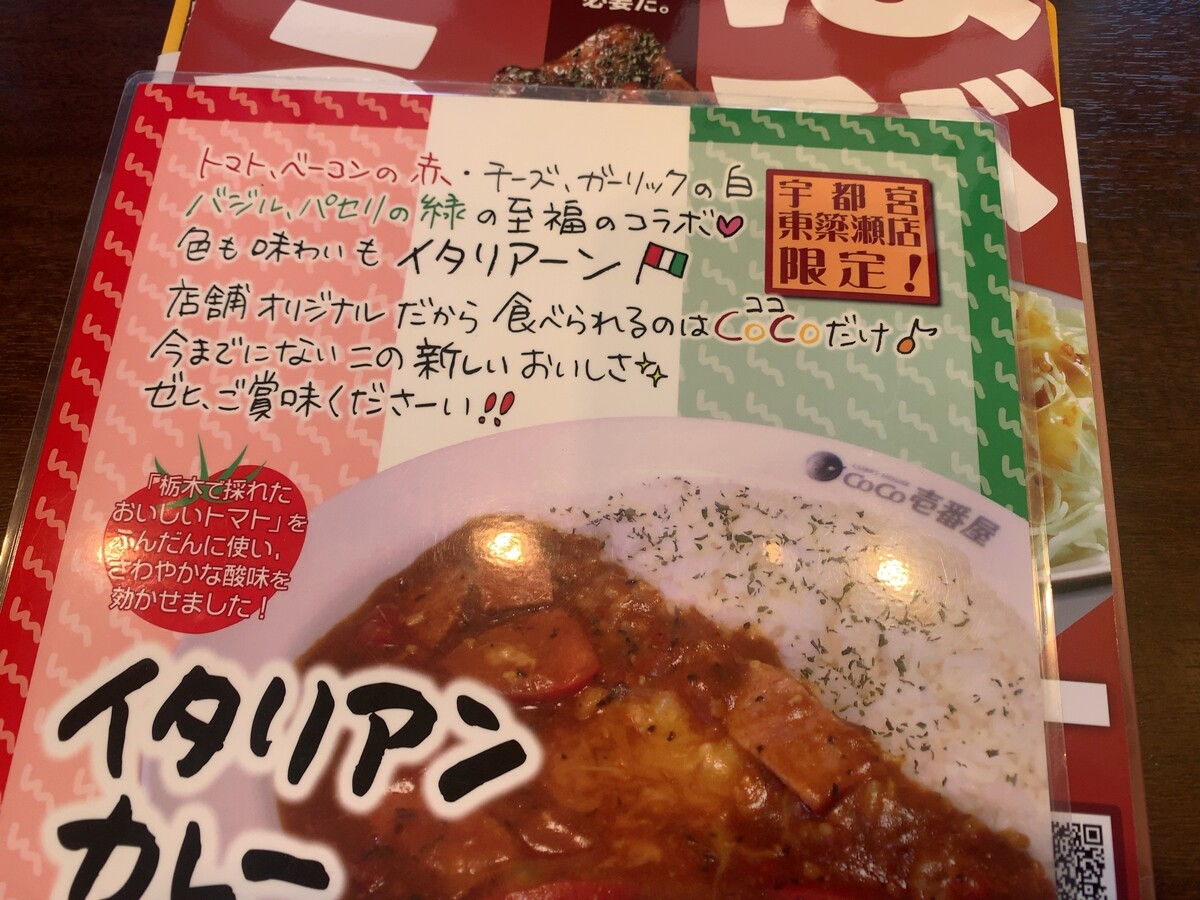 必要だ。
トマト、ベーコンの赤・チーズ、ガーリックの白
バジル、パセリの緑の至福のコラボ♥
色も味わいもイタリアーン
店舗オリジナルだから食べられるのはCoCoだけ♪
ココ
今までにないこの新しいおいしさ
ゼヒ、ご賞味くださーい!!
宇都宮
東簗瀬店
限定!
「栃木で採れた
おいしいトマト」を
ふんだんに使い、
さわやかな酸味を
効かせました!
CoCo壱番屋
イタリアン
カレー